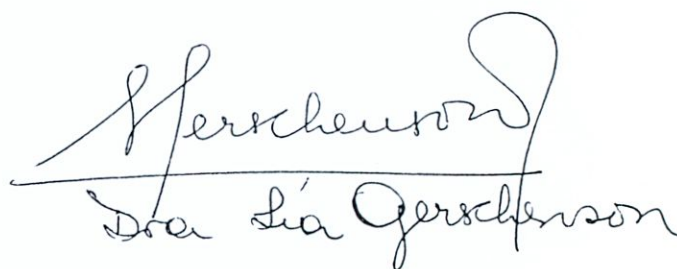 Gerschenson
Dra Lía Gerschenson